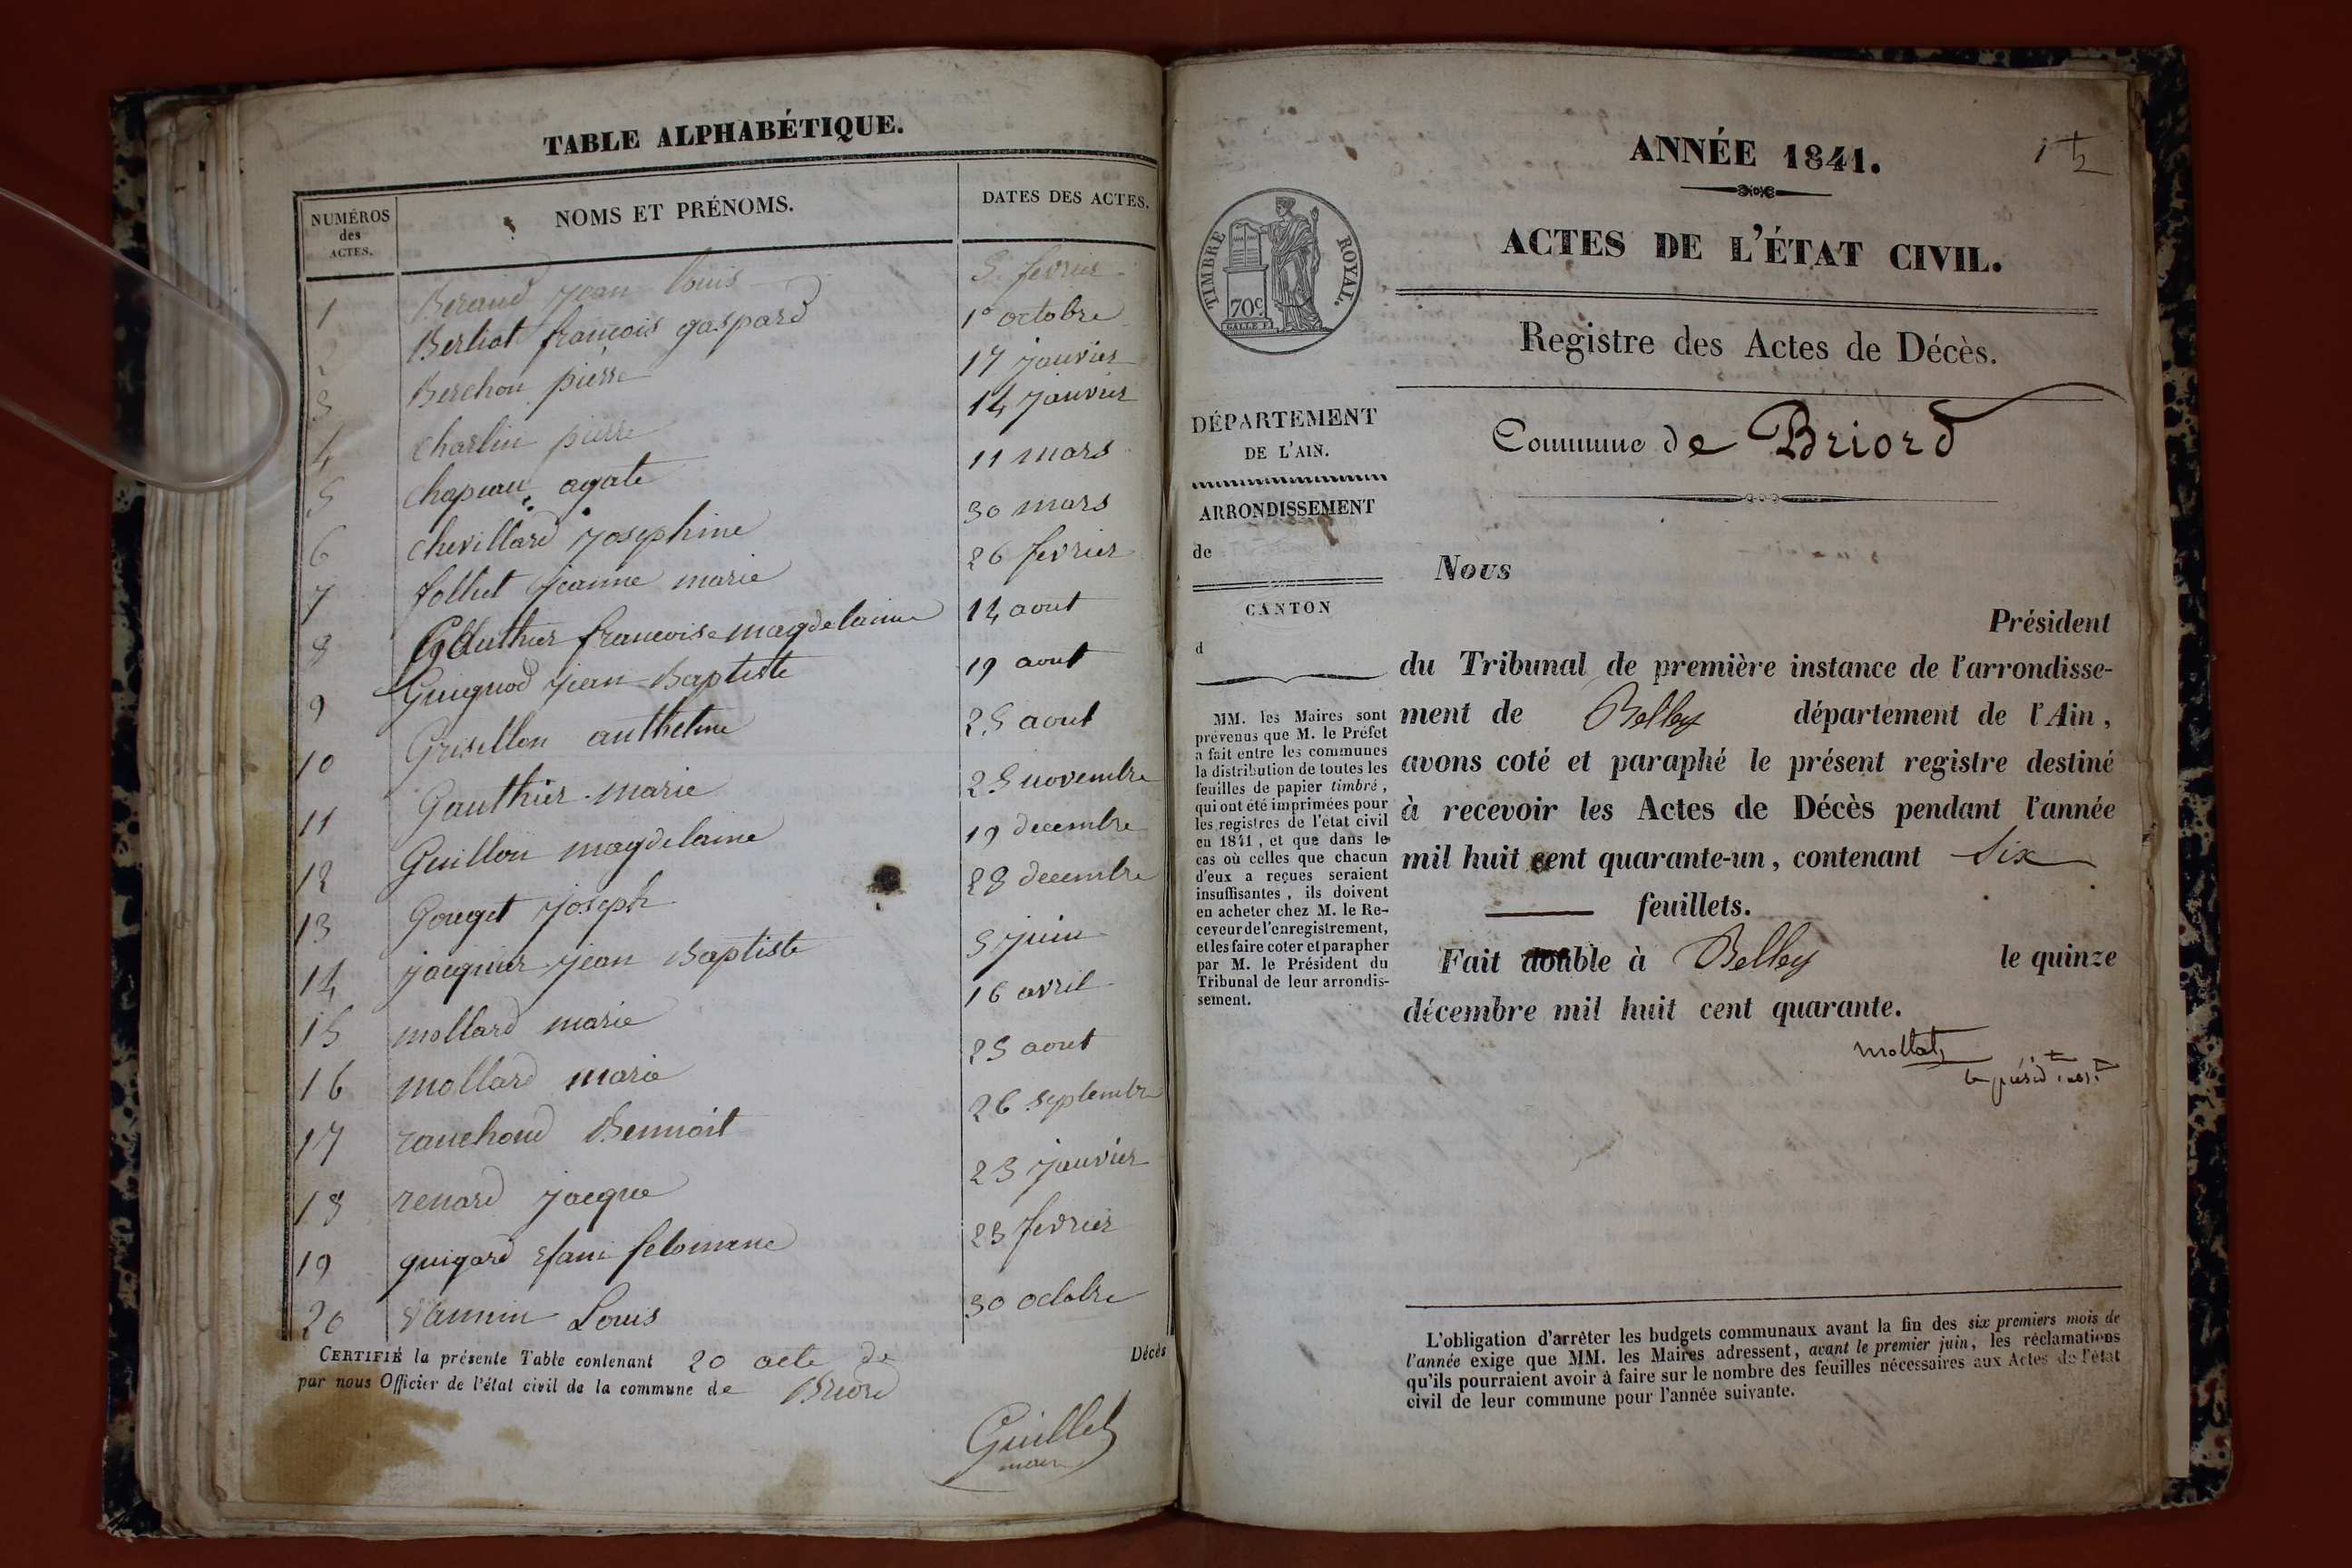 TABLE ALPHABÉTIQUE.
NUMÉROS des ACTES. NOMS ET PRÉNOMS. DATES DES ACTES.
1 Beraud jean louis 5 fevrier
2 Berliat francois gaspard 1º octobre
3 Berchon pierre 17 janvier
4 charlin pierre 14 janvier
5 chapeau agate 11 mars
6 chevillard josephine 30 mars
7 follut jeanne marie 26 fevrier
8 Gauthier francoise magdelaine 14 aout
9 Guignod jean Baptiste 19 aout
10 Grisellon anthelme 25 aout
11 Gauthier marie 25 novembre
12 Guillon magdelaine 19 decembre
13 Gouget joseph 28 decembre
14 jacquier jean Baptiste 5 juin
15 mollard marie 16 avril
16 mollard marie 25 aout
17 ranchoud Bennoit 26 septembre
18 renard jacque 23 janvier
19 guigard felomene 23 fevrier
20 vannin Louis 30 octobre
CERTIFIÉ la présente Table contenant 20 acte de Décès
par nous Officier de l'état civil de la commune de Briord
Guillet
maire
ANNÉE 1841.
ACTES DE L'ÉTAT CIVIL.
Registre des Actes de Décès.
Commune de Briord
TIMBRE ROYAL.
70c
DÉPARTEMENT
DE L'AIN.
ARRONDISSEMENT
de
CANTON
d
MM. les Maires sont
prévenus que M. le Préfet
a fait entre les communes
la distribution de toutes les
feuilles de papier timbré,
qui ont été imprimées pour
les registres de l'état civil
en 1841, et que dans le
cas où celles que chacun
d'eux a reçues seraient
insuffisantes, ils doivent
en acheter chez M. le Re-
ceveur de l'enregistrement,
et les faire coter et parapher
par M. le Président du
Tribunal de leur arrondis-
sement.
Nous
Président
du Tribunal de première instance de l'arrondisse-
ment de Belley département de l'Ain,
avons coté et paraphé le présent registre destiné
à recevoir les Actes de Décès pendant l'année
mil huit cent quarante-un, contenant Six
feuillets.
Fait double à Belley le quinze
décembre mil huit cent quarante.
L'obligation d'arrêter les budgets communaux avant la fin des six premiers mois de
l'année exige que MM. les Maires adressent, avant le premier juin, les réclamations
qu'ils pourraient avoir à faire sur le nombre des feuilles nécessaires aux Actes de l'état
civil de leur commune pour l'année suivante.